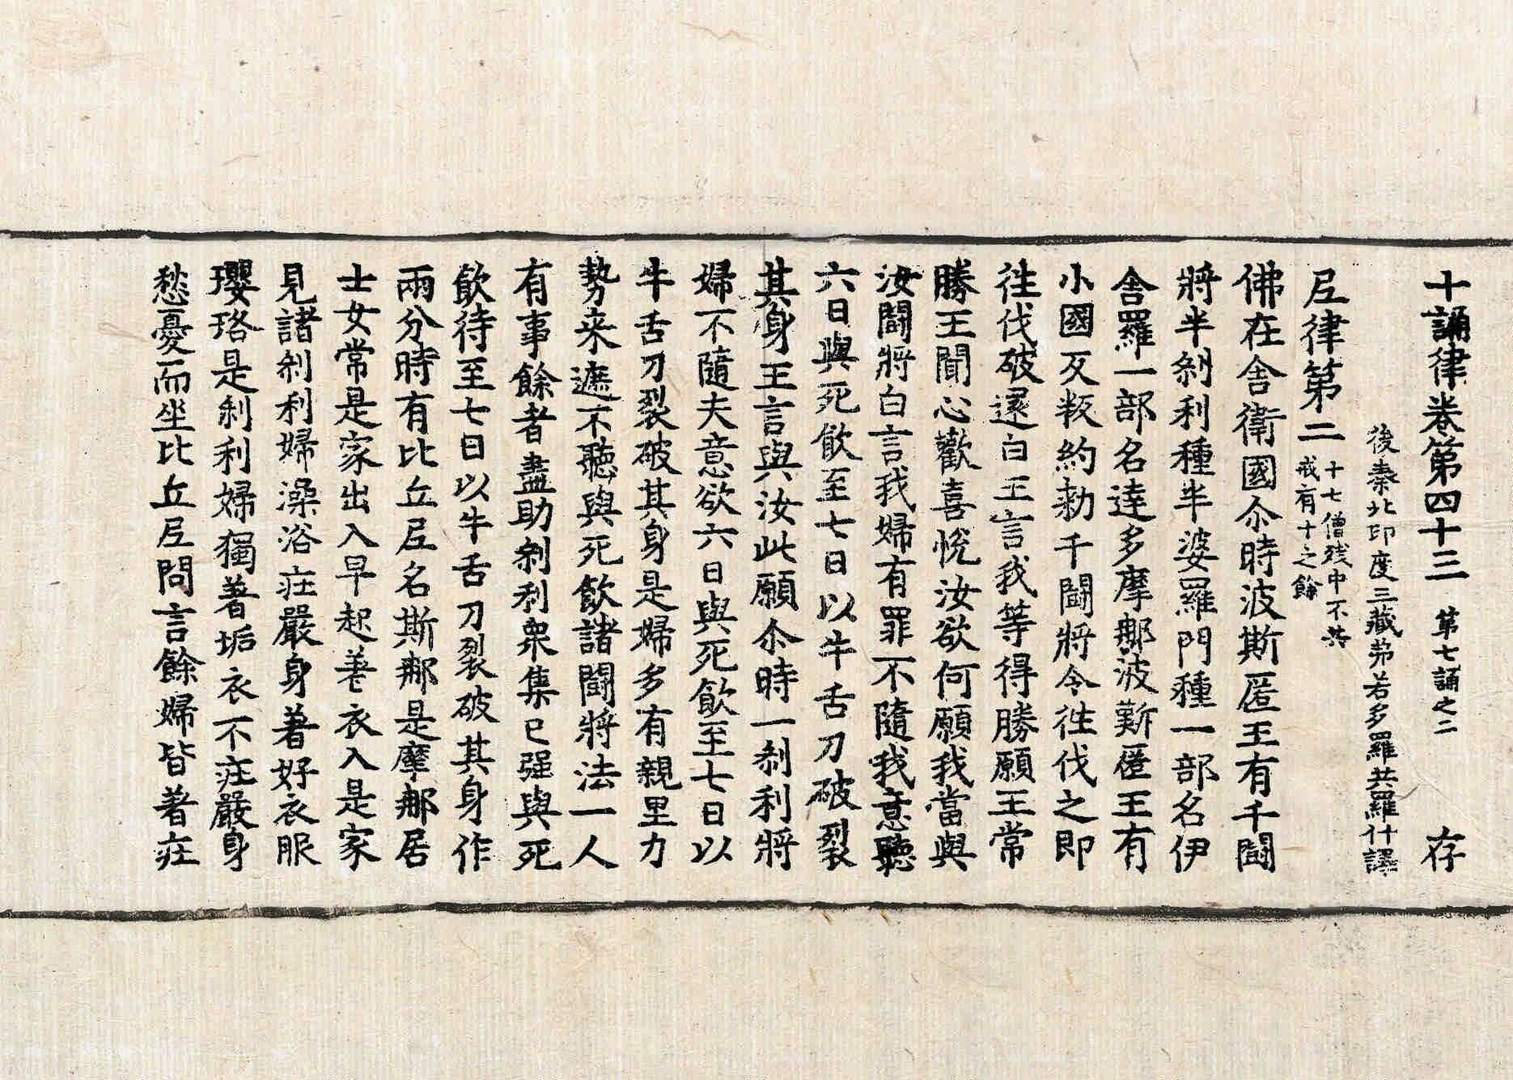 十誦律卷第四十三 第七誦之二 存
後秦北印度三藏弗若多羅共羅什譯
尼律第二 十七僧殘中不共戒有十之餘
佛在舍衛國尒時波斯匿王有千鬪
將半刹利種半婆羅門種一部名伊
舍羅一部名達多摩那波斯匿王有
小國反叛約勑千鬪將令往伐之即
往伐破還白王言我等得勝願王常
勝王聞心歡喜悅汝欲何願我當與
汝鬪將白言我婦有罪不隨我意聽
六日與死飲至七日以牛舌刀破裂
其身王言與汝此願尒時一刹利將
婦不隨夫意欲六日與死飲至七日以
牛舌刀裂破其身是婦多有親里力
勢来遮不聽與死飲諸鬪將法一人
有事餘者盡助刹利衆集已强與死
飲待至七日以牛舌刀裂破其身作
兩分時有比丘尼名斯那是摩那居
士女常是家出入早起著衣入是家
見諸刹利婦澡浴莊嚴身著好衣服
瓔珞是刹利婦獨著垢衣不莊嚴身
愁憂而坐比丘尼問言餘婦皆著莊